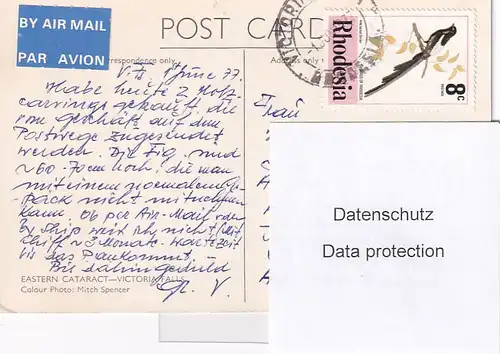 BY AIR MAIL
PAR AVION
POST CARD
VICTORIA
Rhodesia
8c
Correspondence only
Address only
V. F. 1. June 77
Habe heute 2 Holz-
carvings gekauft, die
vom Geschäft auf dem
Postwege zugesendet
werden. Die Fig. sind
~60-70cm hoch, die man
mit einem normalen Ge-
päck nicht mitnehmen
kann. Ob per Air-Mail oder
by Ship weiß ich nicht (mit
Schiff ~3 Monate. Wartezeit
bis das Paket kommt.
Bis dahin Geduld
V.
Frau
EASTERN CATARACT—VICTORIA FALLS
Colour Photo: Mitch Spencer
Datenschutz
Data protection